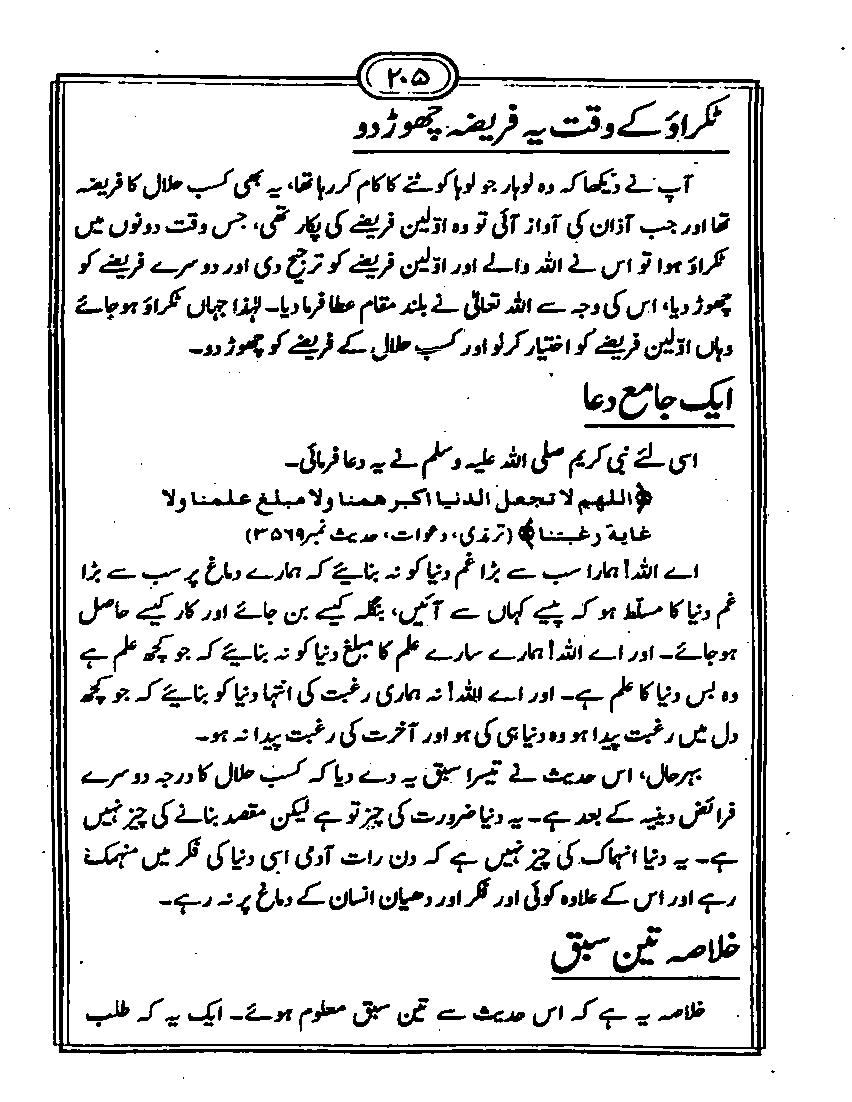 ۲۰۵
ٹکراؤ کے وقت یہ فریضہ چھوڑ دو
آپ نے دیکھا کہ وہ لوہار جو لوہا کوٹنے کا کام کر رہا تھا، یہ بھی کسب حلال کا فریضہ
تھا اور جب آذان کی آواز آئی تو وہ اوّلین فریضے کی پکار تھی، جس وقت دونوں میں
ٹکراؤ ہوا تو اس نے اللہ والے اور اوّلین فریضے کو ترجیح دی اور دوسرے فریضے کو
چھوڑ دیا، اس کی وجہ سے اللہ تعالیٰ نے بلند مقام عطا فرما دیا۔ لہٰذا جہاں ٹکراؤ ہو جائے
وہاں اوّلین فریضے کو اختیار کر لو اور کسب حلال کے فریضے کو چھوڑ دو۔
ایک جامع دعا
اسی لئے نبی کریم صلی اللہ علیہ وسلم نے یہ دعا فرمائی۔
﴿اللهم لا تجعل الدنيا اكبر همنا ولا مبلغ علمنا ولا
غاية رغبتنا﴾ (ترمذی، دعوات، حدیث نمبر ۳۵۶۹)
اے اللہ! ہمارا سب سے بڑا غم دنیا کو نہ بنائیے کہ ہمارے دماغ پر سب سے بڑا
غم دنیا کا مسلّط ہو کہ پیسے کہاں سے آئیں، بنگلہ کیسے بن جائے اور کار کیسے حاصل
ہو جائے۔ اور اے اللہ! ہمارے سارے علم کا مبلغ دنیا کو نہ بنائیے کہ جو کچھ علم ہے
وہ بس دنیا کا علم ہے۔ اور اے اللہ! نہ ہماری رغبت کی انتہا دنیا کو بنائیے کہ جو کچھ
دل میں رغبت پیدا ہو وہ دنیا ہی کی ہو اور آخرت کی رغبت پیدا نہ ہو۔
بہرحال، اس حدیث نے تیسرا سبق یہ دے دیا کہ کسب حلال کا درجہ دوسرے
فرائض دینیہ کے بعد ہے۔ یہ دنیا ضرورت کی چیز تو ہے لیکن مقصد بنانے کی چیز نہیں
ہے۔ یہ دنیا انہماک کی چیز نہیں ہے کہ دن رات آدمی اسی دنیا کی فکر میں منہمک
رہے اور اس کے علاوہ کوئی اور فکر اور دھیان انسان کے دماغ پر نہ رہے۔
خلاصہ تین سبق
خلاصہ یہ ہے کہ اس حدیث سے تین سبق معلوم ہوئے۔ ایک یہ کہ طلب